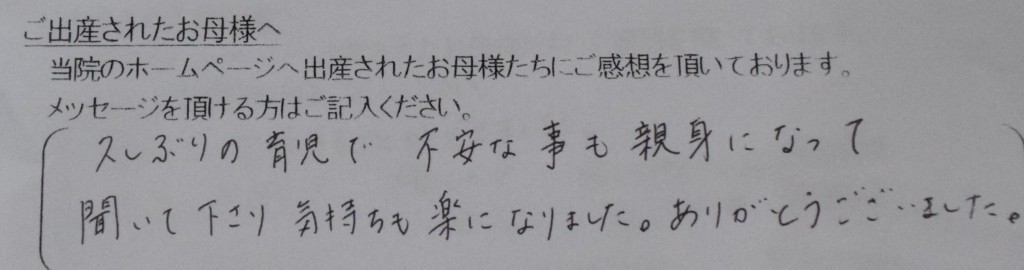 ご出産されたお母様へ
当院のホームページへ出産されたお母様たちにご感想を頂いております。
メッセージを頂ける方はご記入ください。
久しぶりの育児で 不安な事も親身になって
聞いて下さり 気持ちも楽になりました。ありがとうございました。